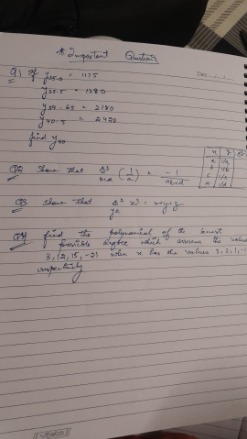 * Important Questions
Q1) If y25.0 = 1175
y35.5 = 1280
y39-65 = 2180
y40.5 = 2420
find y40
x y
a 1/a
b 1/b
c 1/c
d 1/d
Q2 Show that Δ³ bcd (1/a) = -1/abcd
Q3 Show that Δ² yz x³ = x+y+z
Q4) find the polynomial of the lowest
possible degree which assumes the values
3, 12, 15, -21 when x has the values 3, 2, 1, -1
respectively